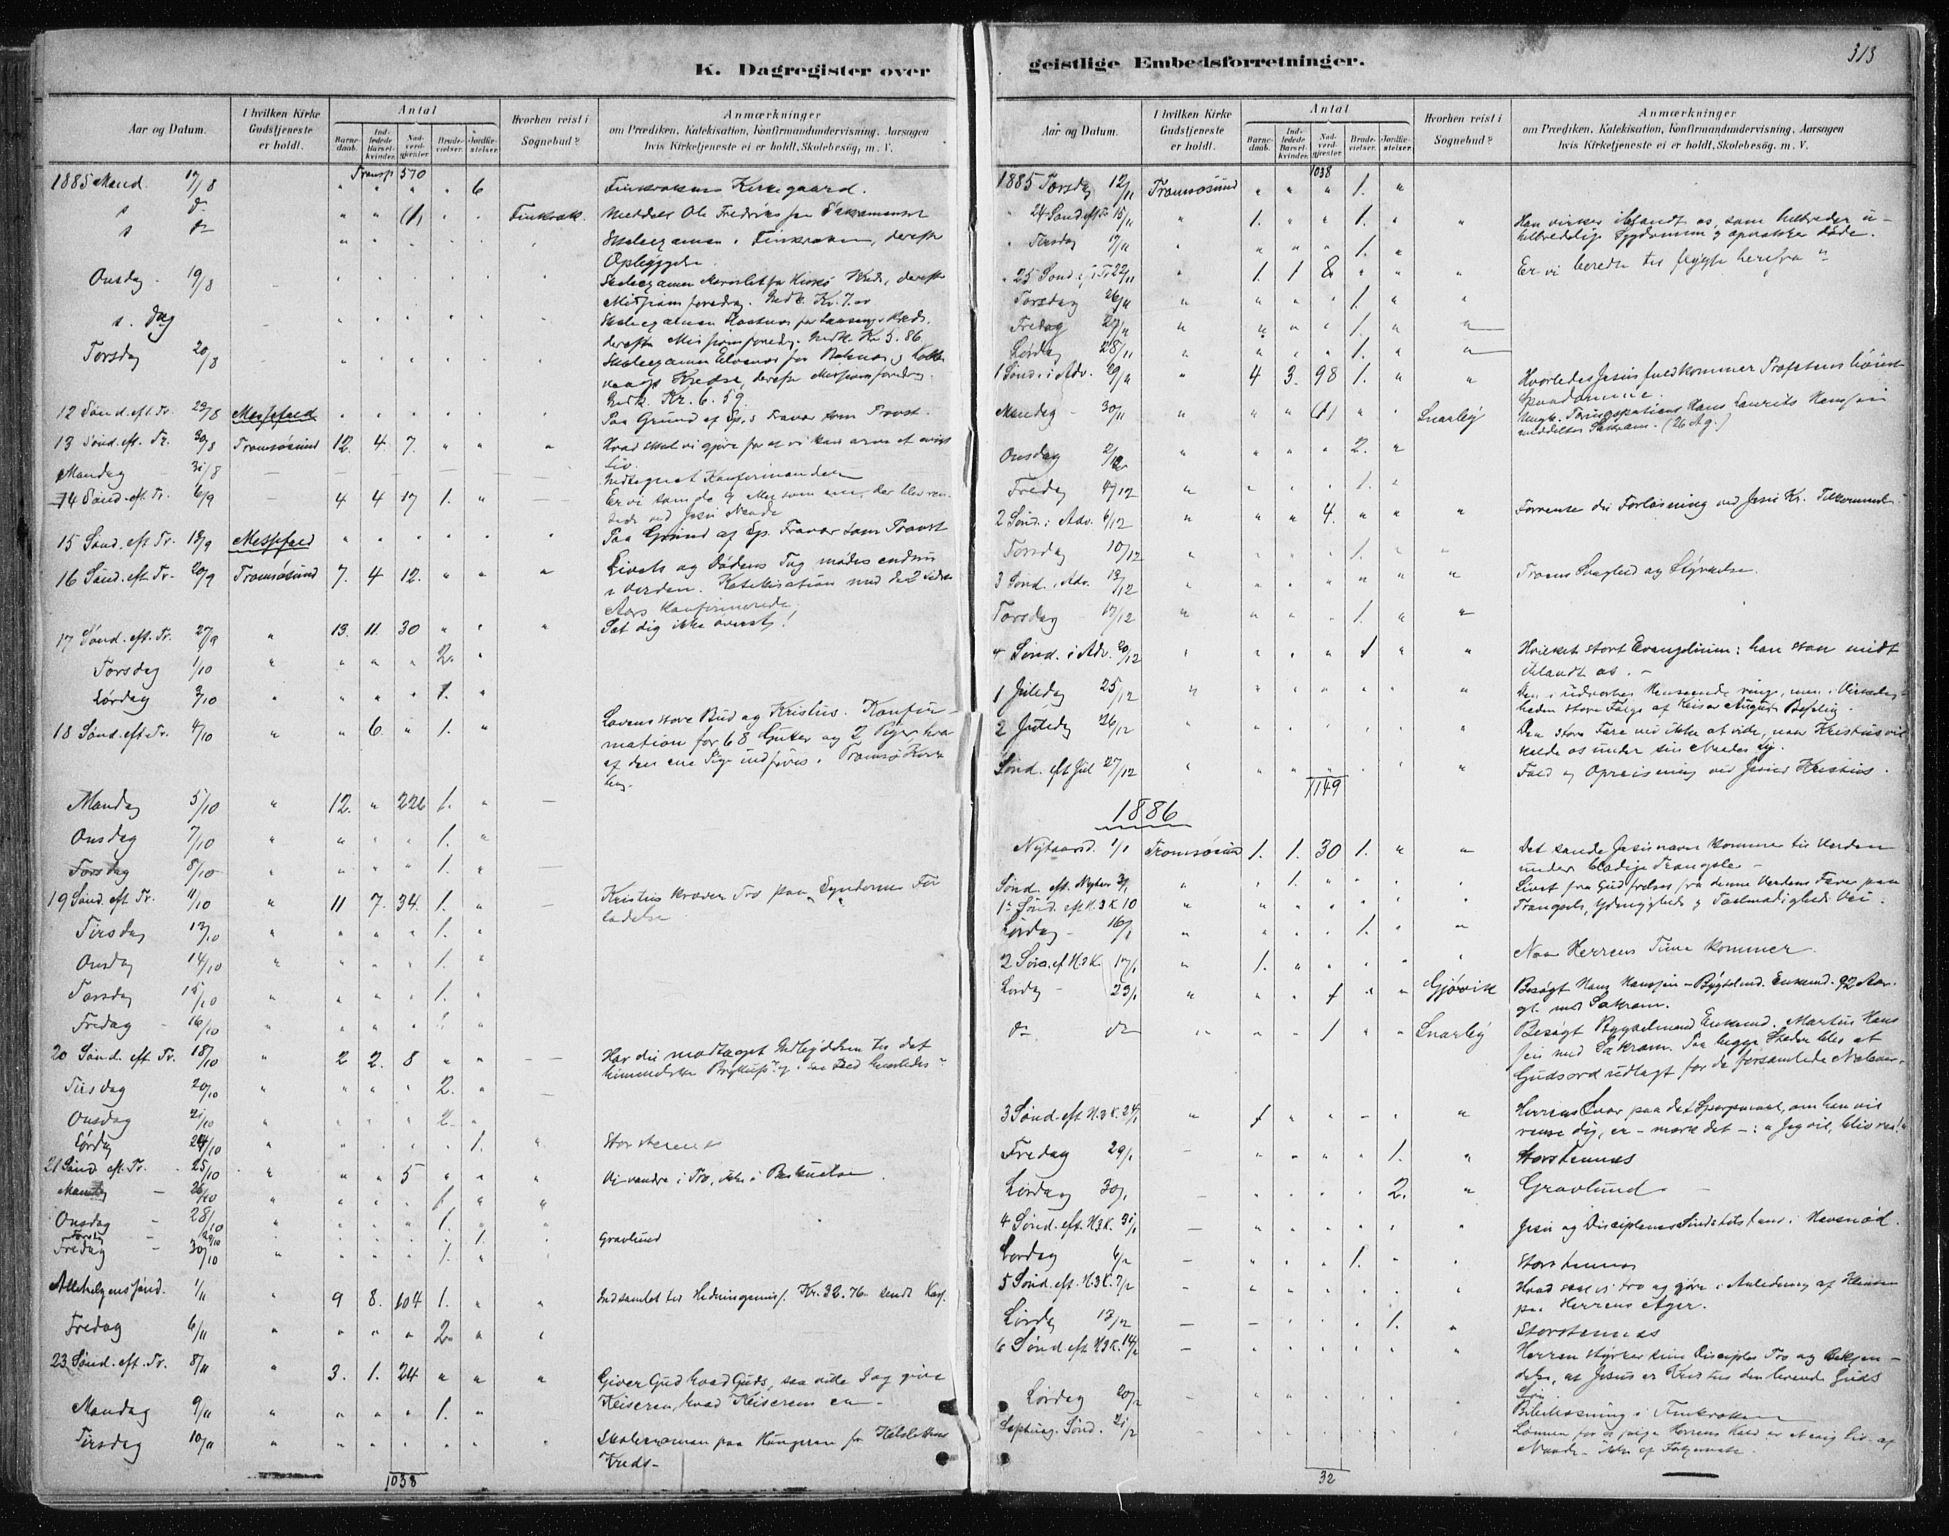 313
K. Dagregister over geistlige Embedsforretninger.
Aar og Datum. I hvilken Kirke Gudstjeneste er holdt. Antal Barnedaab. Indledede Barselkvinder. Nadverdgjester Brudevielser. Jordfæstelser. Hvorhen reist i Sognebud? Anmærkninger om Prædiken, Katekisation, Konfirmandundervisning, Aarsagen hvis Kirketjeneste ei er holdt, Skolebesøg, m. V.
Transp 570
1885 Mand. 17/8 " " " " 6 Finkrokens Kirkegaard.
s d. " " (1) " " Finkrok. Meddelt Ole Fredriks
s d. Skoleexamen i Finkroken, derefter
Opbyggelse
Onsdag - 19/8 Skoleexamen Kreds, derefter
Missionsforedrag. Indk. Kr. 7.00
s. Dag Skoleexamen
derefter Missionsforedrag. Indk. Kr 5.86
Torsdag 20/8 Skoleexamen Elvenes for
Kredse, derefter Missionsforedrag.
Indk. Kr. 6.59.
12 Sønd. eft. Tr. 23/8 Messefald Paa Grund af Sp.s Fravær som Provst.
13 Sønd. eft. Tr. 30/8 Tromsøsund 12. 4. 7. " " Hvad skal vi gjøre for at vi kan arve et evigt
Liv.
Mandag - 31/8 Indtegnet Konfirmander
14 Sønd. eft. Tr. 6/9 4 4 17 1. " Er vi som de 9
ved Jesu Naade
15 Sønd. eft. Tr. 13/9 Messefald Paa Grund af Sp. Fravær som Provst
16 Sønd. eft. Tr. 20/9 Tromsøsund 7. 4 12. " " Livets og Dødens Tog mødes endnu
i Verden. Katekisation med de 2 sidste
Aars Konfirmerede.
17 Sønd. eft. Tr. 27/9 " 13. 11. 30 " " Sæt dig ikke øverst!
Torsdag 1/10 " " " " 2. "
Lørdag 3/10 " " " " 1. "
18 Sønd. eft. Tr. 4/10 " " 6 " 1. " Lovens store Bud og Kristus. Konfir-
mation for 68 Gutter og 2 Piger hvor
af den ene Pige indføres i Tromsø Kirke
bog.
Mandag 5/10 " 12. " 226 1. "
Onsdag 7/10 " " " 1. "
Torsdag 8/10 - " " " 1. "
19 Sønd. eft. Tr. 11/10 " 11 7. 34. 1. " Kristus kræver Tro paa "Syndernes For
ladelse
Tirsdag 13/10 " " " " 1. "
Onsdag 14/10 " " " " 1. "
Torsdag 15/10 " " " " 1. "
Fredag - 16/10 " " " " 1. "
20 Sønd. eft. Tr. 18/10 " 2 2. 8 " " Har du modtaget Indbydelsen til det
himmelske Bryllup?
Tirsdag 20/10 " " " " 2. "
Onsdag 21/10 " " " " 2. "
Lørdag 24/10 " " " " " 1. Storstennes
21 Sønd. eft. Tr. 25/10 " " " 5 " " Vi vandre i Tro, ikke i Beskuelse.
Mandag - 26/10 " " " " 1 "
Onsdag - 28/10 " " " " 1. "
Torsdag 29/10 1. Gravlund
Fredag - 30/10 " " " " 1. "
Allehelgenssønd. 1/11 " 9 8. 104 1. " Indsamlet til Hedningemiss. Kr. 32.76 sendt
Fredag 6/11 " " " " 2. "
23 Sønd. eft. Tr. 8/11 " 3. 1. 24 " " Giver Gud hvad Guds, saa ville I og give
Keiseren, hvad Keiserens er.
Mandag 9/11 " " " " 1. "
Tirsdag 10/11 " " " " " Skoleexamen paa
Kreds.
1038
Aar og Datum. I hvilken Kirke Gudstjeneste er holdt. Antal Barnedaab. Indledede Barselkvinder. Nadverdgjester Brudevielser. Jordfæstelser. Hvorhen reist i Sognebud? Anmærkninger om Prædiken, Katekisation, Konfirmandundervisning, Aarsagen hvis Kirketjeneste ei er holdt, Skolebesøg, m. V.
1038
1885 Torsdag 12/11 Tromsøsund " " " 1. "
" 24 Sønd eft Tr 15/11 " 1. " " 1. " Han virker iblandt os, som helbreder u-
helbredelige Sygdomme og opvækker døde.
" Tirsdag 17/11 " " " 1. "
" 25 Sønd. 22/11 " 1. 1 8 " " Er vi beredte til at flygte herfra "
Torsdag 26/11 " " " " 1. "
Fredag 27/11 " " " " 1. "
Lørdag 28/11 " " " " 1. "
1 Sønd. i Adv. 29/11 " 4 3. 98 1. " Hvorledes Jesus fuldkommer Profetens
Spaadomme.
Mandag - 30/11 " " " (1) " " Snarby Hans Laurits Hansen
meddeltes Sakram.
Onsdag 2/12 " " " " 2. "
Fredag 4/12 " " " " 1. "
2 Sønd. i Adv. 6/12 " " " 4. " " Forvente din Forløsning ved Jesu Kr. Tilkommelse
Torsdag 10/12 " " " " 1. "
3 Sønd. i Adv. 13/12 " " " " " " Troens Svaghed og Styrkelse.
Torsdag 17/12 " " " " 1. "
4 Sønd. i Adv. 20/12 " " " " 1 " Hvilket stort Evangelium: han staar midt
iblandt os. -
1 Juledag 25/12 " " " " " " Den i udvortes Henseende ringe, men i Virkelig-
heden store Følge af Keiser Augusts Befaling.
2 Juledag 26/12 " " " " " " Den store Fare ved ikke at vide, naar Kristus vil
kalde os under sin Naades
Sønd. eft Jul 27/12 " " " " " " Fald og Opreisning ved Jesus Kristus.
1149
1886
Nytaarsd. 1/1 Tromsøsund 1. 1. 30 1. " Det sande Jesu navn kommer til Verden
under blodige Trængsler -
Sønd. eft. Nytaar 3/1 " " 1. " " " Livet fra Gud frelses fra denne Verdens Farer paa
1ste Sønd. eft H.3K 10 " " " " " " Trængsels, Ydmygheds og Taalmodigheds Vei.
Lørdag - 16/1 " " " " 1. "
2 Sønd. ef H.3K. 17/1 " 1. " " " " Naar Herrens Time kommer.
Lørdag - 23/1 " " " 1 " " Gjøvik Besøgt Hans Hanssen - Bygselmd. Enkemd. 92 Aar
gl. med Sakram.
do do " " " 1 " " Snarby Besøgt Bygselmand Enkemd. Martin Hans
sen med Sakram. Paa begge Steder blev et
Gudsord udlagt for de forsamlede Naboer.
3 Sønd. eft H.3K. 24/1 " 1 " " " " Herrens Svar paa det Spørgsmaal, om han vil
rense dig, er - mærk det -: "Jeg vil, bliv ren!"
Fredag 29/1 - " " " " 1. Storstennes
Lørdag 30/1 - " " " " 2. Gravlund
4 Sønd. eft. H3K. 31/1 - Jesu og Disciplenes Sindstilstand i Havsnød.
Lørdag 6/2 - " " " 1. " Storstennes
5 Sønd. eft. H.3K. 7/2 - Hvad skal vi tro og gjøre i Anledning af Klinten
paa Herrens Ager.
Lørdag 13/2 - 1. Storstennes
6 Sønd. eft H3K. 14/2 - Herren styrker sine Disciples Tro og Bekjen-
delse, at Jesus er Kristus den levende Guds
Søn.
Lørdag 20/2 - Bibellæsning i Finkroken
Septuag. Sønd. 21/2 Lønnen for at følge Herrens Kald er et evig Liv af
Naade - ikke af Fortjeneste.
32